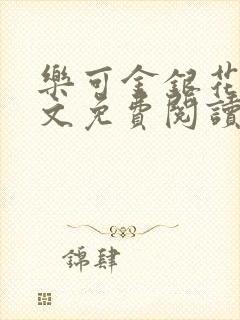 樂可金銀花
文免費閱讀
錦肆